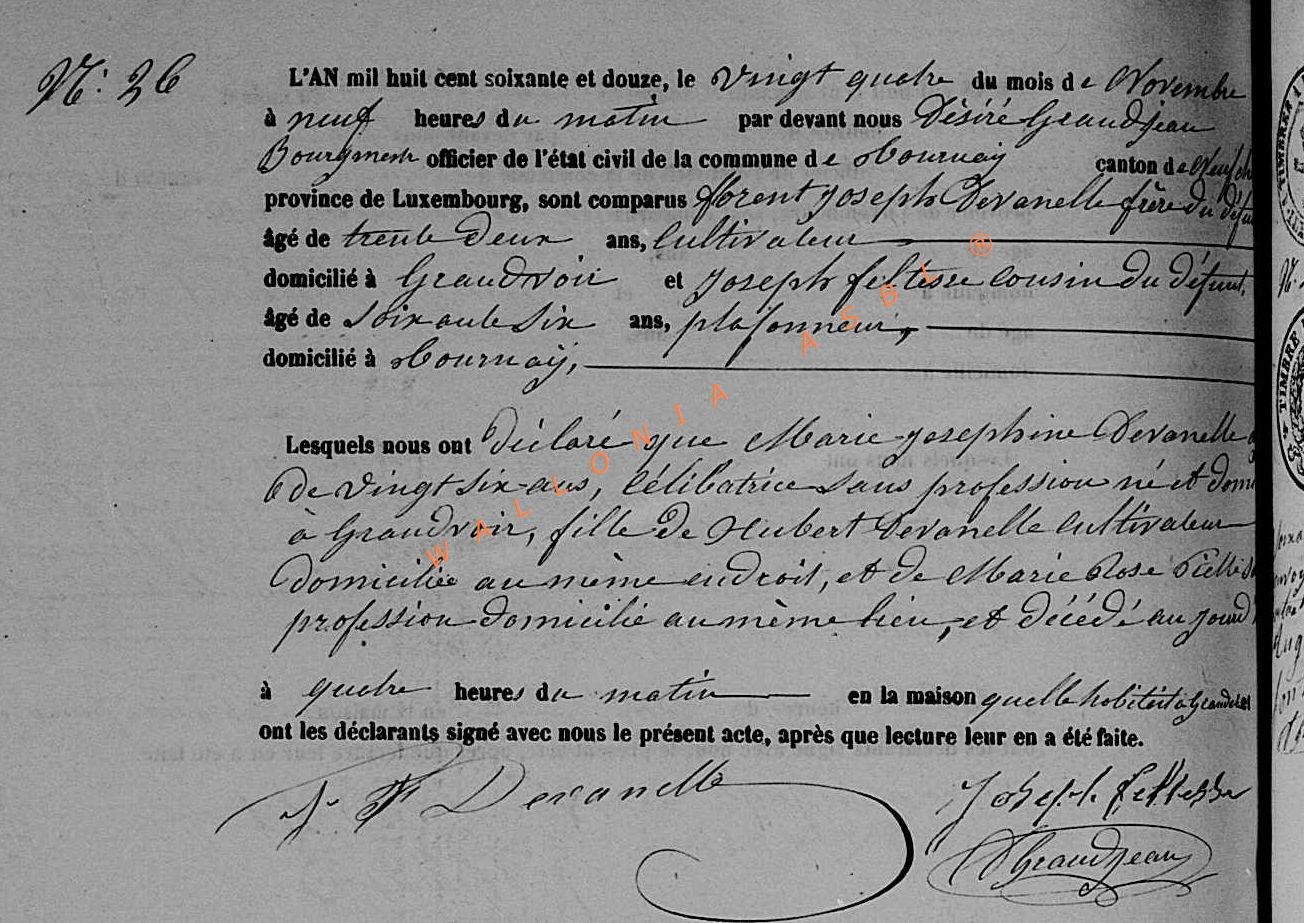 N.° 26
L'AN mil huit cent soixante et douze, le vingt quatre du mois de Novembre
à neuf heures du matin par devant nous Désiré Grandjean
Bourgmestr officier de l'état civil de la commune de Tournay canton de Neufch
province de Luxembourg, sont comparus florent joseph Devanelle frère du défun
âgé de trente Deux ans, Cultivateur
domicilié à Grandvoir et joseph feltesse cousin du défunt,
âgé de Soixante Six ans, plafonneur,
domicilié à Tournay,
Lesquels nous ont déclaré que Marie josephine Devanelle
de vingt six ans, Célibatrice Sans profession né et domi
à Grandvoir, fille de Hubert Devanelle Cultivateur
Domiciliée au même endroit, et de Marie Rose
profession domicilié au même lieu, et décédé aujourd
à quatre heures du matin en la maison quelle habitait a
ont les déclarants signé avec nous le présent acte, après que lecture leur en a été faite.
J. F Devanelle Joseph feltesse
DGrandjean
WALLONIA ASBL ®